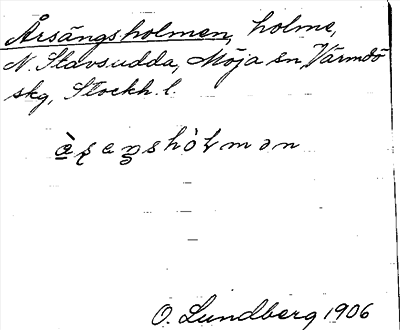 Årsängsholmen, holme,
N. Stavsudda, Möja sn, Värmdö
skg, Stockh. l.
O. Lundberg 1906